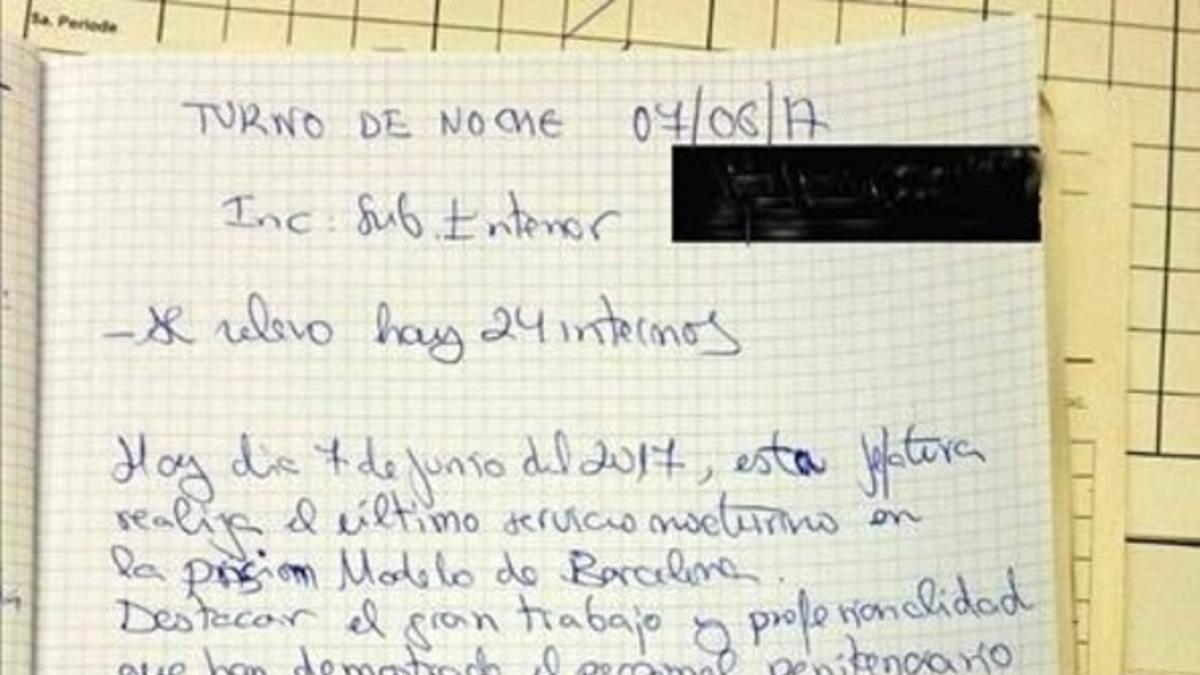 5a. Periode
TURNO DE NOCHE 07/06/17
Inc: Sub. Interior
- Se relevo hay 24 internos
Hoy dia 7 de junio del 2017, esta jefatura
realiza el último servicio nocturno en
la prision Modelo de Barcelona.
Destacar el gran trabajo y profesionalidad
que han demostrado el personal penitenciario